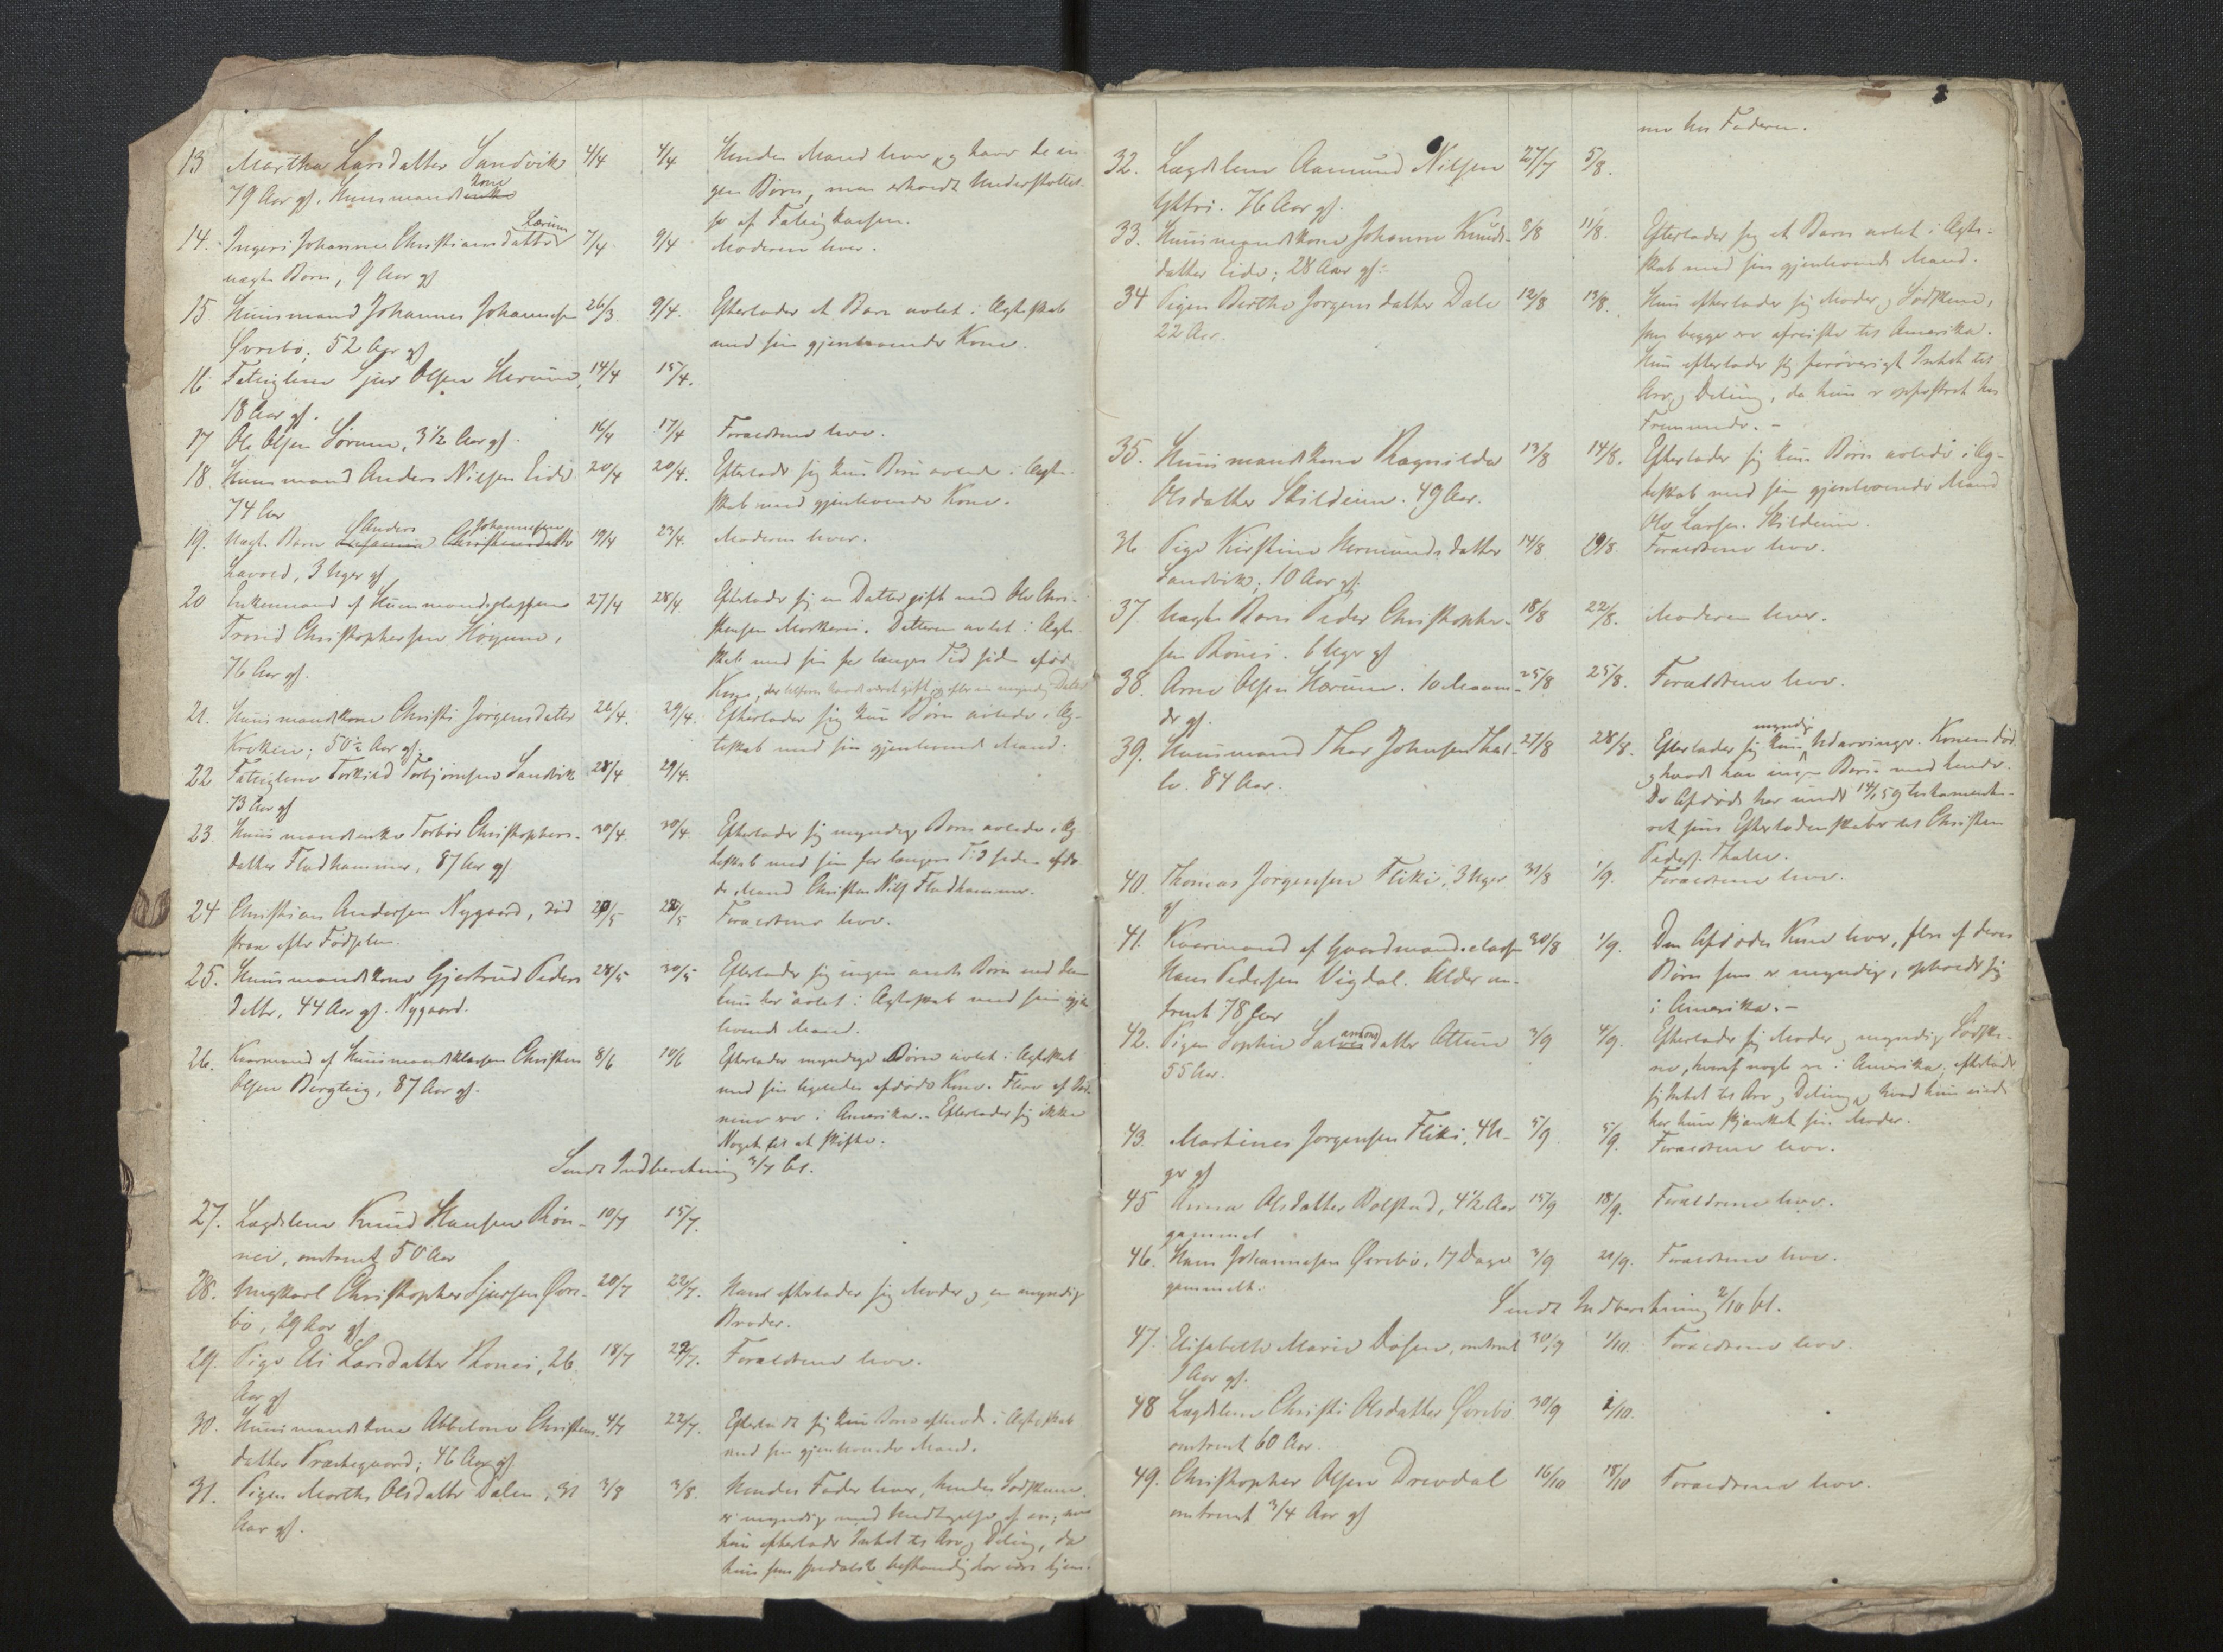 13 Martha Larsdatter Sandvik 4/4 4/4 Hendes Mand lever og have de in-
79 Aar gl. Huusmandskone gen Børn, men erholdt Understøttel-
se af Fatigkassen.
14. Ingeri Johanne Christiansdatter Lerum 7/4 9/4 Moderen lever.
uægte Barn, 9 Aar gl
15 Huusmand Johannes Johannesen 26/3 9/4. Efterlader et Barn avlet i Ægteskab
Øvrebø; 52 Aar gl med sin gjenlevende Kone.
16 Fatiglem Sjur Olsen Herum, 14/4 15/4.
18 Aar gl.
17 Ole Olsen Sørum, 3 1/2 Aar gl. 16/4 17/4 Forældrene leve.
18 Huusmand Anders Nilsen Eide 20/4 20/4. Efterlader sig kun Børn avlede i Ægte-
74 Aar skab med gjenlevende Kone.
19. Uægte Barn Anders Johannesen 19/4 23/4. Moderen lever.
3 Uger gl
20 Enkemand af Huusmandsklassen 27/4 28/4. Efterlader sig en Datter gift med Ole Chri-
Trond Christophersen stensen Datteren avlet i Ægte-
76 Aar gl. skab med sin for længere Tid siden afdøde
Kone,
21. Huusmandskone Christi Jørgensdatter 26/4. 29/4. Efterlader sig kun Børn avlede i Æg-
Kroken; 50 1/2 Aar gl. teskab med sin gjenlevende Mand.
22 Fatiglem Torkild Torbjørnsen Sandvik 28/4 29/4.
73 Aar gl
23. Huusmandsenke Torbør Christophers- 30/4. 30/4. Efterlader sig myndige Børn avlede i Æg-
datter Fladhammer, 87 Aar gl teskab med sin for længere Tid siden afdø-
de Mand Christen Nils Fladhammer.
24 Christian Andersen Nygaard, død Forældrene leve.
strax efter Fødselen.
25. Huusmandskone Gjertrud Peders- 28/5 30/5 Efterlader sig ingen andre Børn end dem
datter, 44 Aar gl. Nygaard. hun har avlet i Ægteskab med sin gjen-
levende Mand.
26. Kaarmand af Huusmandsklassen Christen 8/6 10/6 Efterlader myndige Børn avlet i Ægteskab
Olsen Bergteig, 87 Aar gl. med sin ligeledes afdøde Kone. Flere af Bør-
nene ere i Amerika. Efterlader sig ikke
Noget til at skifte.
Sendt Indberetning 3/7 61.
27. Lægdslem Knud Hansen Røn- 10/7 15/7.
nei, omtrent 50 Aar
28. Ungkarl Christopher Sjursen Øvre- 20/7 22/7. Hans efterlader sig Moder og en myndig
bø, 29 Aar gl Broder.
29. Pige Eli Larsdatter Rønei, 26 18/7 Forældrene leve.
Aar gl
30. Huusmandskone Abbelone Christens- 4/7 22/7. Efterladt sig kun Børn i Ægteskab
datter Præstegaard; 46 Aar gl med sin gjenlevende Mand.
31. Pigen Marthe Olsdatter Dalen, 31 3/8 3/8. Hendes Fader lever, hendes Sødskende
Aar gl. er myndige med Undtagelse af en; men
hun efterlader Intet til Arv og Deling, da
hun som spedalsk bestandig har været hjem-
me hos Faderen.
32. Lægdslem Aamund Nilsen 27/7 5/8.
Ytri. 76 Aar gl.
33. Huusmandskone Johanne Knuds- 8/8 11/8. Efterlader sig et Barn avlet i Ægte-
datter Eide; 28 Aar gl. skab med sin gjenlevende Mand.
34 Pigen Berthe Jørgensdatter Dale 12/8 13/8. Hun efterlader sig Moder og Sødskende,
22 Aar. som begge ere afreiste til Amerika.
Hun efterlader sig forøvrigt Intet til
Arv og Deling, da hun er opfostret hos
Fremmede. -
35. Huusmandskone Ragnilde 13/8 14/8. Efterlader sig kun Børn avlede i Æg-
Olsdatter Skildeim. 49 Aar. teskab med sin gjenlevende Mand
Ole Larsen Skildeim.
36 Pige Kirstine Hermundsdatter 14/8 19/8. Forældrene leve.
Sandvik; 10 Aar gl.
37. Uægte Barn Peder Christopher- 18/8 22/8. Moderen lever.
sen Rønei. 6 Uger gl
38. Arne Olsen Herum. 10 Maane- 25/8 25/8. Forældrene leve.
der gl.
39. Huusmand Thor Johnsen Tha- 27/8 28/8. Efterlader sig kun myndige Udarvinger. Konen død
le. 84 Aar. og havde han ingen Børn med hende.
Den Afdøde har under 14/1 59 testamente-
ret sine Efterladenskaber til Christen
Peders. Thale.
40. Thomas Jørgensen Fliki, 3 Uger 31/8 1/9. Forældrene leve.
gl
41. Kaarmand af Gaardmandsclassen 30/8 1/9. Den Afdødes Kone lever, flere af deres
Hans Pedersen Vigdal. Alder om- Børn som er myndige, opholde sig
trent 78 Aar i Amerika. -
42. Pigen Sophie Salamonsdatter Attum 3/9 4/9. Efterlader sig Moder og myndige Sødsken-
55 Aar. de, hvoraf nogle ere i Amerika; efterlader
sig Intet til Arv og Deling og hvad hun eiede
har hun skjænket sin Moder.
43. Martines Jørgensen Fliki, 4 U- 5/9 5/9. Forældrene leve.
ger gl
45 Anna Olsdatter Bolstad, 4 1/2 Aar 15/9 18/9. Forældrene leve.
gammel
46. Hans Johannesen Øvrebø, 17 Dage 3/9 21/9. Forældrene leve.
gammelt.
Sendt Indberetning 2/10 61.
47. Elisabeth Marie Døsen, omtrent 30/9 1/10. Forældrene leve.
1 Aar gl.
48 Lægdslem Christi Olsdatter Øvrebø 30/9
omtrent 60 Aar.
49. Christopher Olsen Drevdal 16/10 18/10 Forældrene leve.
omtrent 3/4 Aar gl